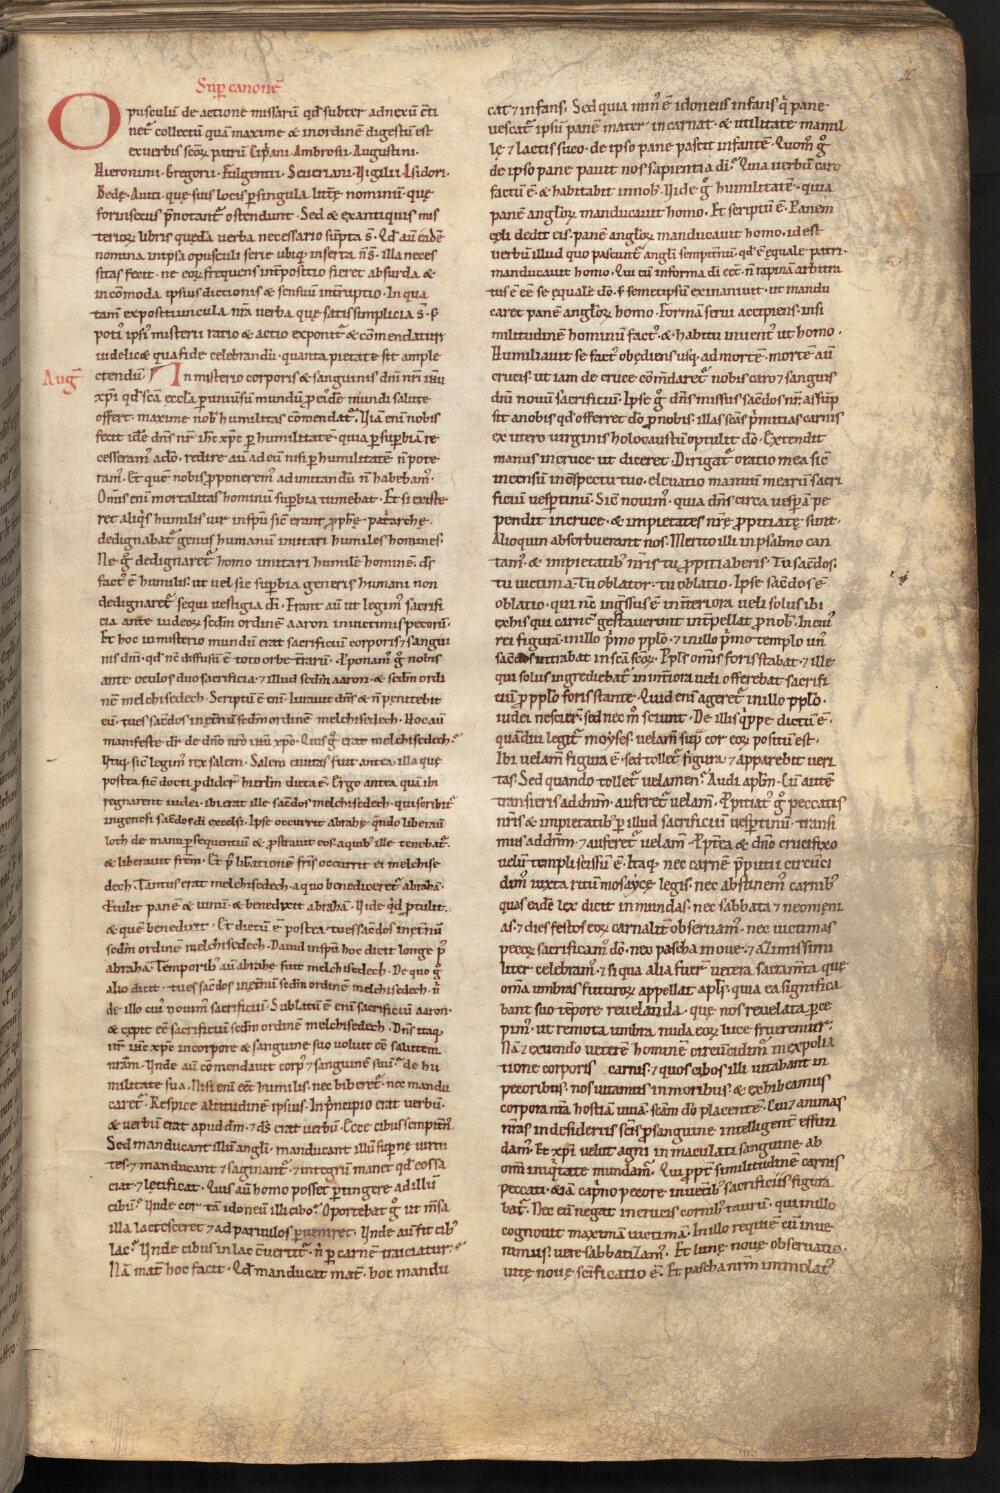 Sup canonē
Opusculū de actione missarū qd subter adnexū ē ti
net᷑ collectū quā maxime & inordinē digestū est
ex verbis scōꝝ patrū Cip̄ani. Ambrosii. Augustini.
Hieronimi. Gregorii. Fulgentii. Seueriani. Vigilii. Isidori.
Bedę. Auiti. quę suis locis p singula litt̄ę nominū. quę
forinsecus p̄notant᷑ ostendunt. Sed & ex antiquis mis
terioꝝ libris quędā verba necessario sūpta s̄. Qd aū eadē
nomina in ipsa opusculi serie ubiq; inserta n̄ s̄. illa neces
sitas fecit. ne eoꝝ frequens int̄positio fieret absurda &
incōmoda ipsius dictionis & sensuū int̄ruptio. In qua
tam̄ expositiuncula nr̄a verba quę satis simplicia s̄. &
poti᷒ ipsi᷒ misterii ratio & actio exponit᷑ & cōmendatur
uidelic& qua fide celebrandū. quanta pietate sit ample
ctendū
Aug̃
In misterio corporis & sanguinis dnī nrī ihū
xp̄i. qd scā eccl̄a p uniūsū mundū p eiusdē mundi salute
offert. maxime nob̄ humilitas cōmendat᷑. Quā enī nobis
fecit idē dn̄s nr̄ ihc xpc p humilitatē. quia p supbiā re
cesseram᷒ a dō. redire aū ad eū nisi p humilitatē n̄ pote
ram᷒. Et quē nobis pponerem᷒ ad imitandū n̄ habebam᷒.
Om̄is enī mortalitas hominū supbia tumebat. Et si existe
ret aliq̇s humilis uir in sp̄u sic̄ erant pph̄ę. pat̄archę.
dedignabat᷑ genus humanū imitari humiles homines.
Ne g̊ dedignaret᷑ homo imitari humilē hominē. ds̄
fact᷒ ē humilis. ut vel sic supbia generis humani non
dedignaret᷑ sequi vestigia dī. Erant aū ut legim᷒ sacrifi
cia ante iudeoꝝ sc̄dm ordinē aaron in uictimis pecorū.
Et hoc in misterio mundū erat sacrificiū corporis ⁊ sangui
nis dnī. qd nc̄ diffusū ē toto orbe t̄rarū. Ponam᷒ g̊ nobis
ante oculos duo sacrificia. ⁊ illud sc̄dm aaron. & sc̄dm ordi
nē melchisedech. Scriptū ē enī. Iurauit dn̄s & n̄ penitebit
eū. tu es sac̄dos in et̄nū sc̄dm ordinē melchisedech. Hoc aū
manifeste dr̄ de dn̄o nrō ihū xpō. Quis g̊ erat melchisedech?
Vtiq; sic̄ legim᷒ rex salem. Salem ciuitas fuit antea. illa quę
postea sic̄ docti pdider᷒ hierlm̄ dicta ē. Ergo antea quā ibi
regnarent iudei. ibi erat ille sac̄dos melchisedech. qui scribit᷑
in genesi sac̄dos dī excelsi. Ipse occurrit abrahę q̄ndo liberauit
loth de manu psequentiū & pstrauit eos a quib᷒ ille tenebat᷑.
& liberauit frēm. Et p᷒ lib̄ationē frīs occurrit ei melchise
dech. Tantus erat melchisedech. a quo benediceret᷑ abrahā.
Ptulit panē & uinū. & benedixit abrahā. Vide qd ptulit.
& quē benedixit. Et dictū ē postea tu es sac̄dos in et̄nū
sc̄dm ordinē melchisedech. Dauid in sp̄u hoc dicit longe p᷒
abrahā. Temporib᷒ aū abrahę fuit melchisedech. De quo g̊
alio dicit. tu es sac̄dos in et̄nū sc̄dm ordinē melchisedech. n̄
de illo cui᷒ nouim᷒ sacrificiū. Sublatū ē enī sacrificiū aaron.
& cępit ee᷒ sacrificiū sc̄dm ordinē melchisedech. Dn̄s itaq;
nr̄ ihc xpc in corpore & sanguine suo uoluit eē salutem
nr̄am. Vnde aū cōmendauit corp᷒ ⁊ sanguinē suū? de hu
militate sua. Nisi enī eēt humilis. nec biberet᷑. nec mandu
caret᷑. Respice altitudinē ipsius. In p̄ncipio erat verbū.
& verbū erat apud dm̄. ⁊ ds̄ erat verbū. Ecce cibus sempit̄n᷒.
Sed manducant illū angl̄i. manducant illū sup̄nę uirtu
tes. ⁊ manducant ⁊ saginant᷑. ⁊ integrū manet qd eos sa
ciat ⁊ lętificat. Quis aū homo posset ptingere ad illū
cibū? Vnde cor tā idoneū illi cibo? Oportebat g̊ ut m̄sa
illa lactesceret ⁊ ad paruulos pueniret. Vnde aū fit cib᷒
lac? Vnde cibus in lac cōuertit᷑. n̄ p carnē traiciatur?
Nā mat̄ hoc facit. Qd manducat mat̄. hoc mandu
cat ⁊ infans. Sed quia min᷒ ē idoneus infans q̇ pane
vescat᷑ ipsū panē mater incarnat. & utilitate mamil
lę ⁊ lactis suco. de ipso pane pascit infantē. Quom᷒ g̊
de ipso pane pauit nos sapientia dī? Quia verbū caro
factū ē. & habitabit in nob̄. Vide g̊ humilitatē. quia
panē angl̄oꝝ manducauit homo. Et scriptū ē. Panem
cęli dedit eis. panē angl̄oꝝ manducauit homo. id est
verbū illud quo pascunt᷑ angl̄i sempit̄nū. qd ē ęquale patri.
manducauit homo. Qui cū in forma dī eēt. n̄ rapinā arbitra
tus ē eē se ęqualē dō. s; semetipsū exinaniuit. ut mandu
caret panē angl̄oꝝ homo. Formā serui accipiens. in si
militudinē hominū fact᷒. & habitu inuent᷒ ut homo.
Humiliauit se fact᷒ obędiens usq; ad mortē. mortē aū
crucis. ut iam de cruce cōmdaret᷑ nobis caro ⁊ sanguis
dnī nouū sacrificiū. Ipse g̊ dn̄s missus sac̄dos nr̄ assūp
sit a nobis qd offerret dō p nobis. illas scās p̄mitias carnis
ex utero uirginis holocaustū optulit dō. Extendit
manus in cruce ut diceret. Dirigat᷑ oratio mea sic̄
incensū in cspectu tuo. eleuatio manuū mearū sacri
ficiū vesp̄tinū. Sic̄ nouim᷒. quia dn̄s circa vesp̄ā pe
pendit in cruce. & impietates nr̄ę ppitiatę sunt.
Alioquin absorbuerant nos. Merito illi in psalmo can
tam᷒. & impietatib᷒ nr̄is tu ppitiaberis. Tu sac̄dos.
tu uictima. Tu oblator. tu oblatio. Ipse sac̄dos ē
oblatio. qui nc̄ ing̊ssus ē in int̄iora ueli solus ibi
ex his qui carnē gestauerunt int̄pellat p nob̄. In cui᷒
rei figurā in illo p̄mo pplō. ⁊ in illo p̄mo templo un᷒
sac̄dos intrabat in scā scōꝝ. Ppls om̄is foris stabat. ⁊ ille
qui solus ingrediebat᷑ in int̄iora ueli offerebat sacrifi
ciū p pplo foris stante. Quid enī ageret᷑ in illo pplo.
iudei nescier᷒. sed nec m᷒ sciunt. De illis q̇ppe dictū ē.
quādiu legit᷑ moyses. velam̄ sup᷒ cor eoꝝ positū est.
Ibi velam̄ figura ē. sed tollet᷑ figura. ⁊ apparebit ueri
tas. Sed quando tollet᷑ velamen? Audi aplm̄. Cū aūtē
transieris ad dnm̄. auferet᷑ velam̄. Ppitiat᷑ g̊ peccatis
nr̄is & impietatib᷒ p illud sacrificiū vesp̄tinū. transi
mus ad dnm̄. ⁊ auferet᷑ velam̄. Pp̄t̄ea & dn̄o crucifixo
velū templi scissū ē. Itaq; nec carnē p̄putii circūci
dim᷒ iuxta ritū mosaycę legis. nec abstinem᷒ carnib᷒
quas eadē lex dicit in mundas. nec sabbata ⁊ neomeni
as. ⁊ dies festos eoꝝ carnalit̄ obseruam᷒. nec uictimas
pecoꝝ sacrificam᷒ dō. nec pascha in oue. ⁊ azimis simi
liter celebram᷒. ⁊ si qua alia fuer᷒ vetera sacram̄ta que
om̄a umbras futuroꝝ appellat apls̄. quia ea significa
bant suo tēpore reuelanda. quę nos reuelata pce
pim᷒. ut remota umbra nuda eoꝝ luce frueremur.
Nā ⁊ exuendo veterē hominē circūcidim᷒ in expolia
tione corporis carnis. ⁊ quos cibos illi uitabant in
pecoribus. nos uitamus in moribus. & exhibeamus
corpora nr̄a hostiā uiuā. scām dō placentē. Cui ⁊ animas
nr̄as in desideriis scīs p sanguine intelligent̄ effun
dam᷒. Et xp̄i velut agni in maculati sanguine. ab
om̄i iniq̇tate mundam᷒. Qui ppt̄ similitudinē carnis
peccati. &iā cap̄no pecore inuet̄ib᷒ sacrificiis figura
bat᷑. Nec eū negat in crucis cornib᷒ taurū. qui in illo
cognouit maximā uictimā. In illo requiē cū inue
nimus. vere sabbatizam᷒. Et lunę nouę obseruatio.
uitę nouę scīficatio ē. Et pascha nrm̄ immolat᷒